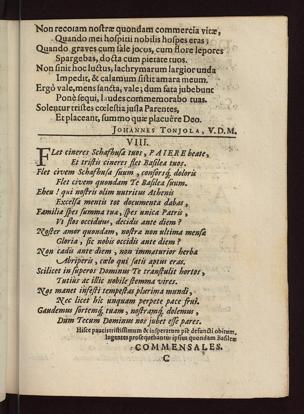 Non recoiam nostræ quondam commercia vitæ,
Quando mei hospiti nobilis hospes eras;
Quando graves cum sale jocus, cum flore lepores
Spargebas, docta cum pietate tuos.
Non sinit hoc luctus, lachrymarum largior unda
Impedit, & calamum sistit amara meum.
Ergò vale, mens sancta, vale; dum fata jubebunt
Ponè sequi, laudes commemorabo tuas.
Solentur tristes cœlestia jussa Parentes,
Et placeant, summo quæ placuêre Deo.
JOHANNES TONJOLA, V. D. M.
VIII.
FLet cineres Schafhusa tuos, PATERE beate,
Et tristis cineres flet Basilea tuos.
Flet civem Schafhusa suum, consorsq; doloris
Flet civem quondam Te Basilea suum.
Eheu! qui nostris olim nutritus Athenis
Excelsa mentis tot documenta dabas,
Familiæ spes summa tuæ, spes unica Patris,
Vt flos occiduus, decidis ante diem?
Noster amor quondam, nostra non ultima mensæ
Gloria, sic nobis occidis ante diem?
Non cadis ante diem, non immaturior herba
Abriperis, cælo qui satis aptus eras.
Scilicet in superos Dominus Te transtulit hortos,
Tutius ac illic nobile stemma vires.
Nos manet infesti tempestas plurima mundi,
Nec licet hîc unquam perpete pace frui.
Gaudemus sortemq; tuam, nostramq; dolemus,
Dum Tecum Dominus nos jubet esse pares.
Hisce pauci tristissimum & insperatum piè defuncti obitum,
lugentes prosequebantur ipsius quondam Basileæ
COMMENSALES.
C